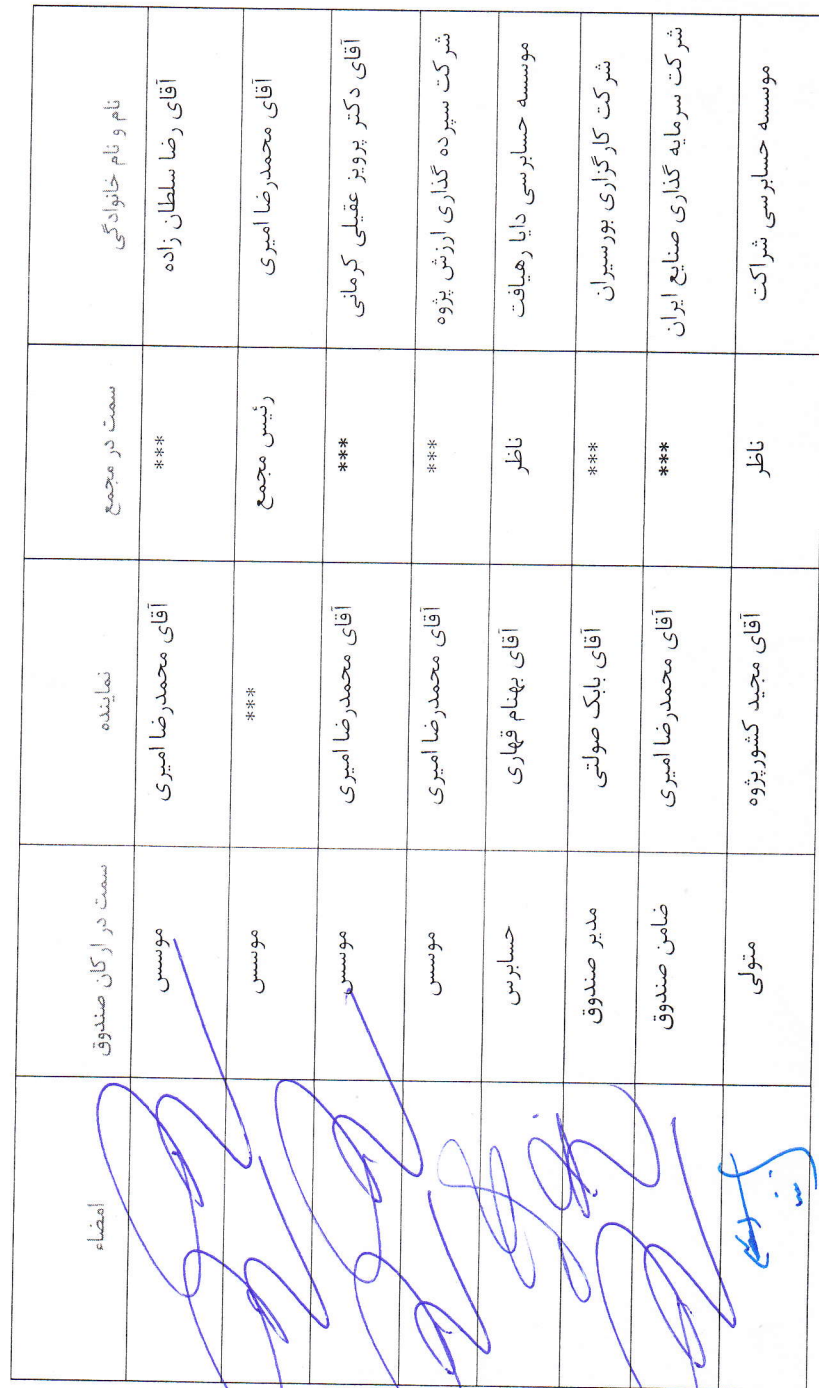 نام و نام خانوادگی سمت در مجمع نماینده سمت در ارکان صندوق امضاء
آقای رضا سلطان زاده *** آقای محمدرضا امیری موسس
آقای محمدرضا امیری رئیس مجمع *** موسس
آقای دکتر پرویز عقیلی کرمانی *** آقای محمدرضا امیری موسس
شرکت سپرده گذاری ارزش پژوه *** آقای محمدرضا امیری موسس
موسسه حسابرسی دایا رهیافت ناظر آقای بهنام قهاری حسابرس
شرکت کارگزاری بورسیران *** آقای بابک صولتی مدیر صندوق
شرکت سرمایه گذاری صنایع ایران *** آقای محمدرضا امیری ضامن صندوق
موسسه حسابرسی شراکت ناظر آقای مجید کشورپژوه متولی